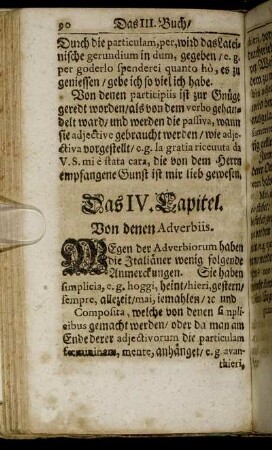 90 Das III. Buch/
Durch die particulam, per, wird das Latei-
nische gerundium in dum, gegeben / e. g.
per goderlo spenderei quanto hò, es zu
geniessen / gebe ich so viel ich habe.
Von denen participiis ist zur Gnüge
geredt worden / als von dem verbo gehan-
delt ward / und werden die passiva, wann
sie adjectivè gebraucht werden / wie adje-
ctiva vorgestellt / e. g. la gratia riceuuta da
V. S. mi è stata cara, die von dem Herrn
empfangene Gunst ist mir lieb gewesen.
Das IV. Capitel.
Von denen Adverbiis.
WEgen der Adverbiorum haben
die Italiäner wenig folgende
Anmerckungen. Sie haben
simplicia, e. g. hoggi, heint / hieri, gestern /
sempre, allezeit / mai, iemahlen / ꝛc und
Composita, welche von denen simpli-
cibus gemacht werden / oder da man am
Ende derer adjectivorum die particulam
mente, anhänget / e. g. avan-
thieri,